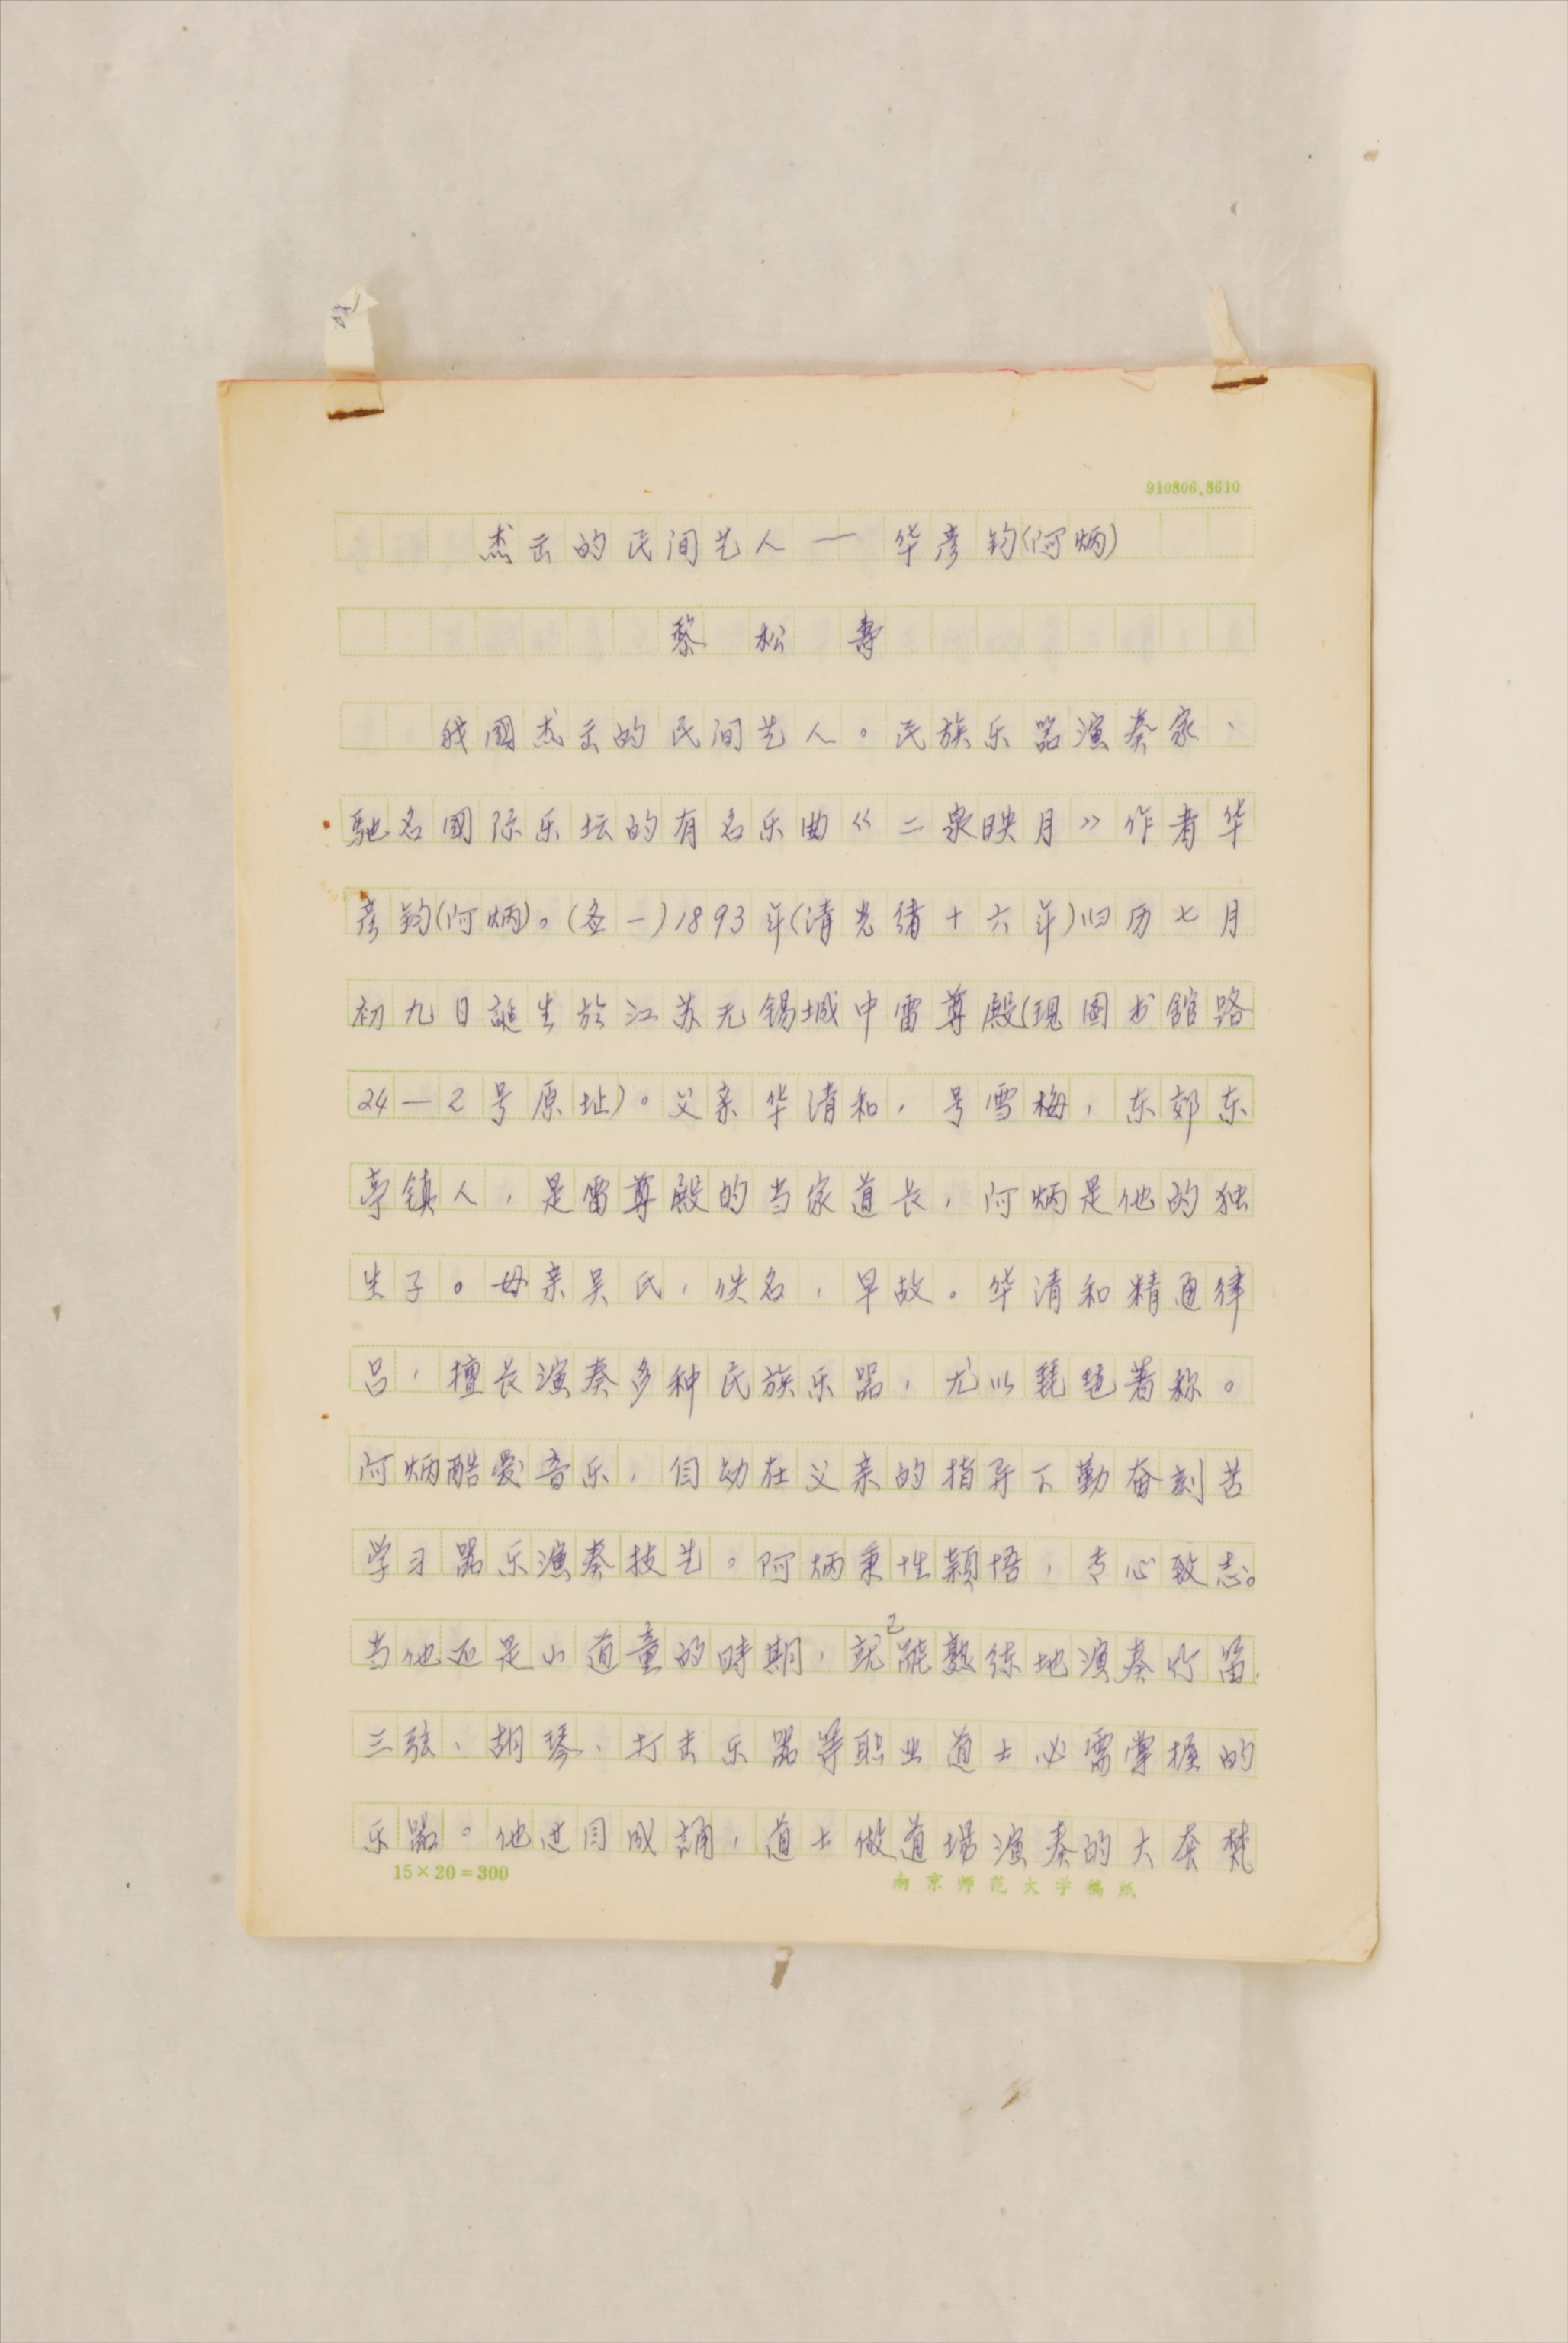 910806.8610
杰出的民间艺人一华彦钧(阿炳)
黎松寿
我國杰出的民间艺人。民族乐器演奏家、
驰名國际乐坛的有名乐曲《二泉映月》作者华
彦钧(阿炳)。(图一)1893年(清光绪十六年)旧历七月
初九日誕生於江苏无锡城中雷尊殿(现图书館路
24—2号原址)。父亲华清和，号雪梅，东郊东
亭镇人，是雷尊殿的当家道长，阿炳是他的独
生子。母亲吴氏，佚名，早故。华清和精通律
吕，擅长演奏多种民族乐器，尤以琵琶著称。
阿炳酷爱音乐，自幼在父亲的指导下勤奋刻苦
学习器乐演奏技艺。阿炳秉性颖悟，专心致志。
当他还是小道童的時期，就已能熟练地演奏竹笛、
三弦、胡琴、打击乐器等职业道士必需掌握的
乐器。他过目成誦，道士做道場演奏的大套梵
15×20=300
南京师范大学稿纸